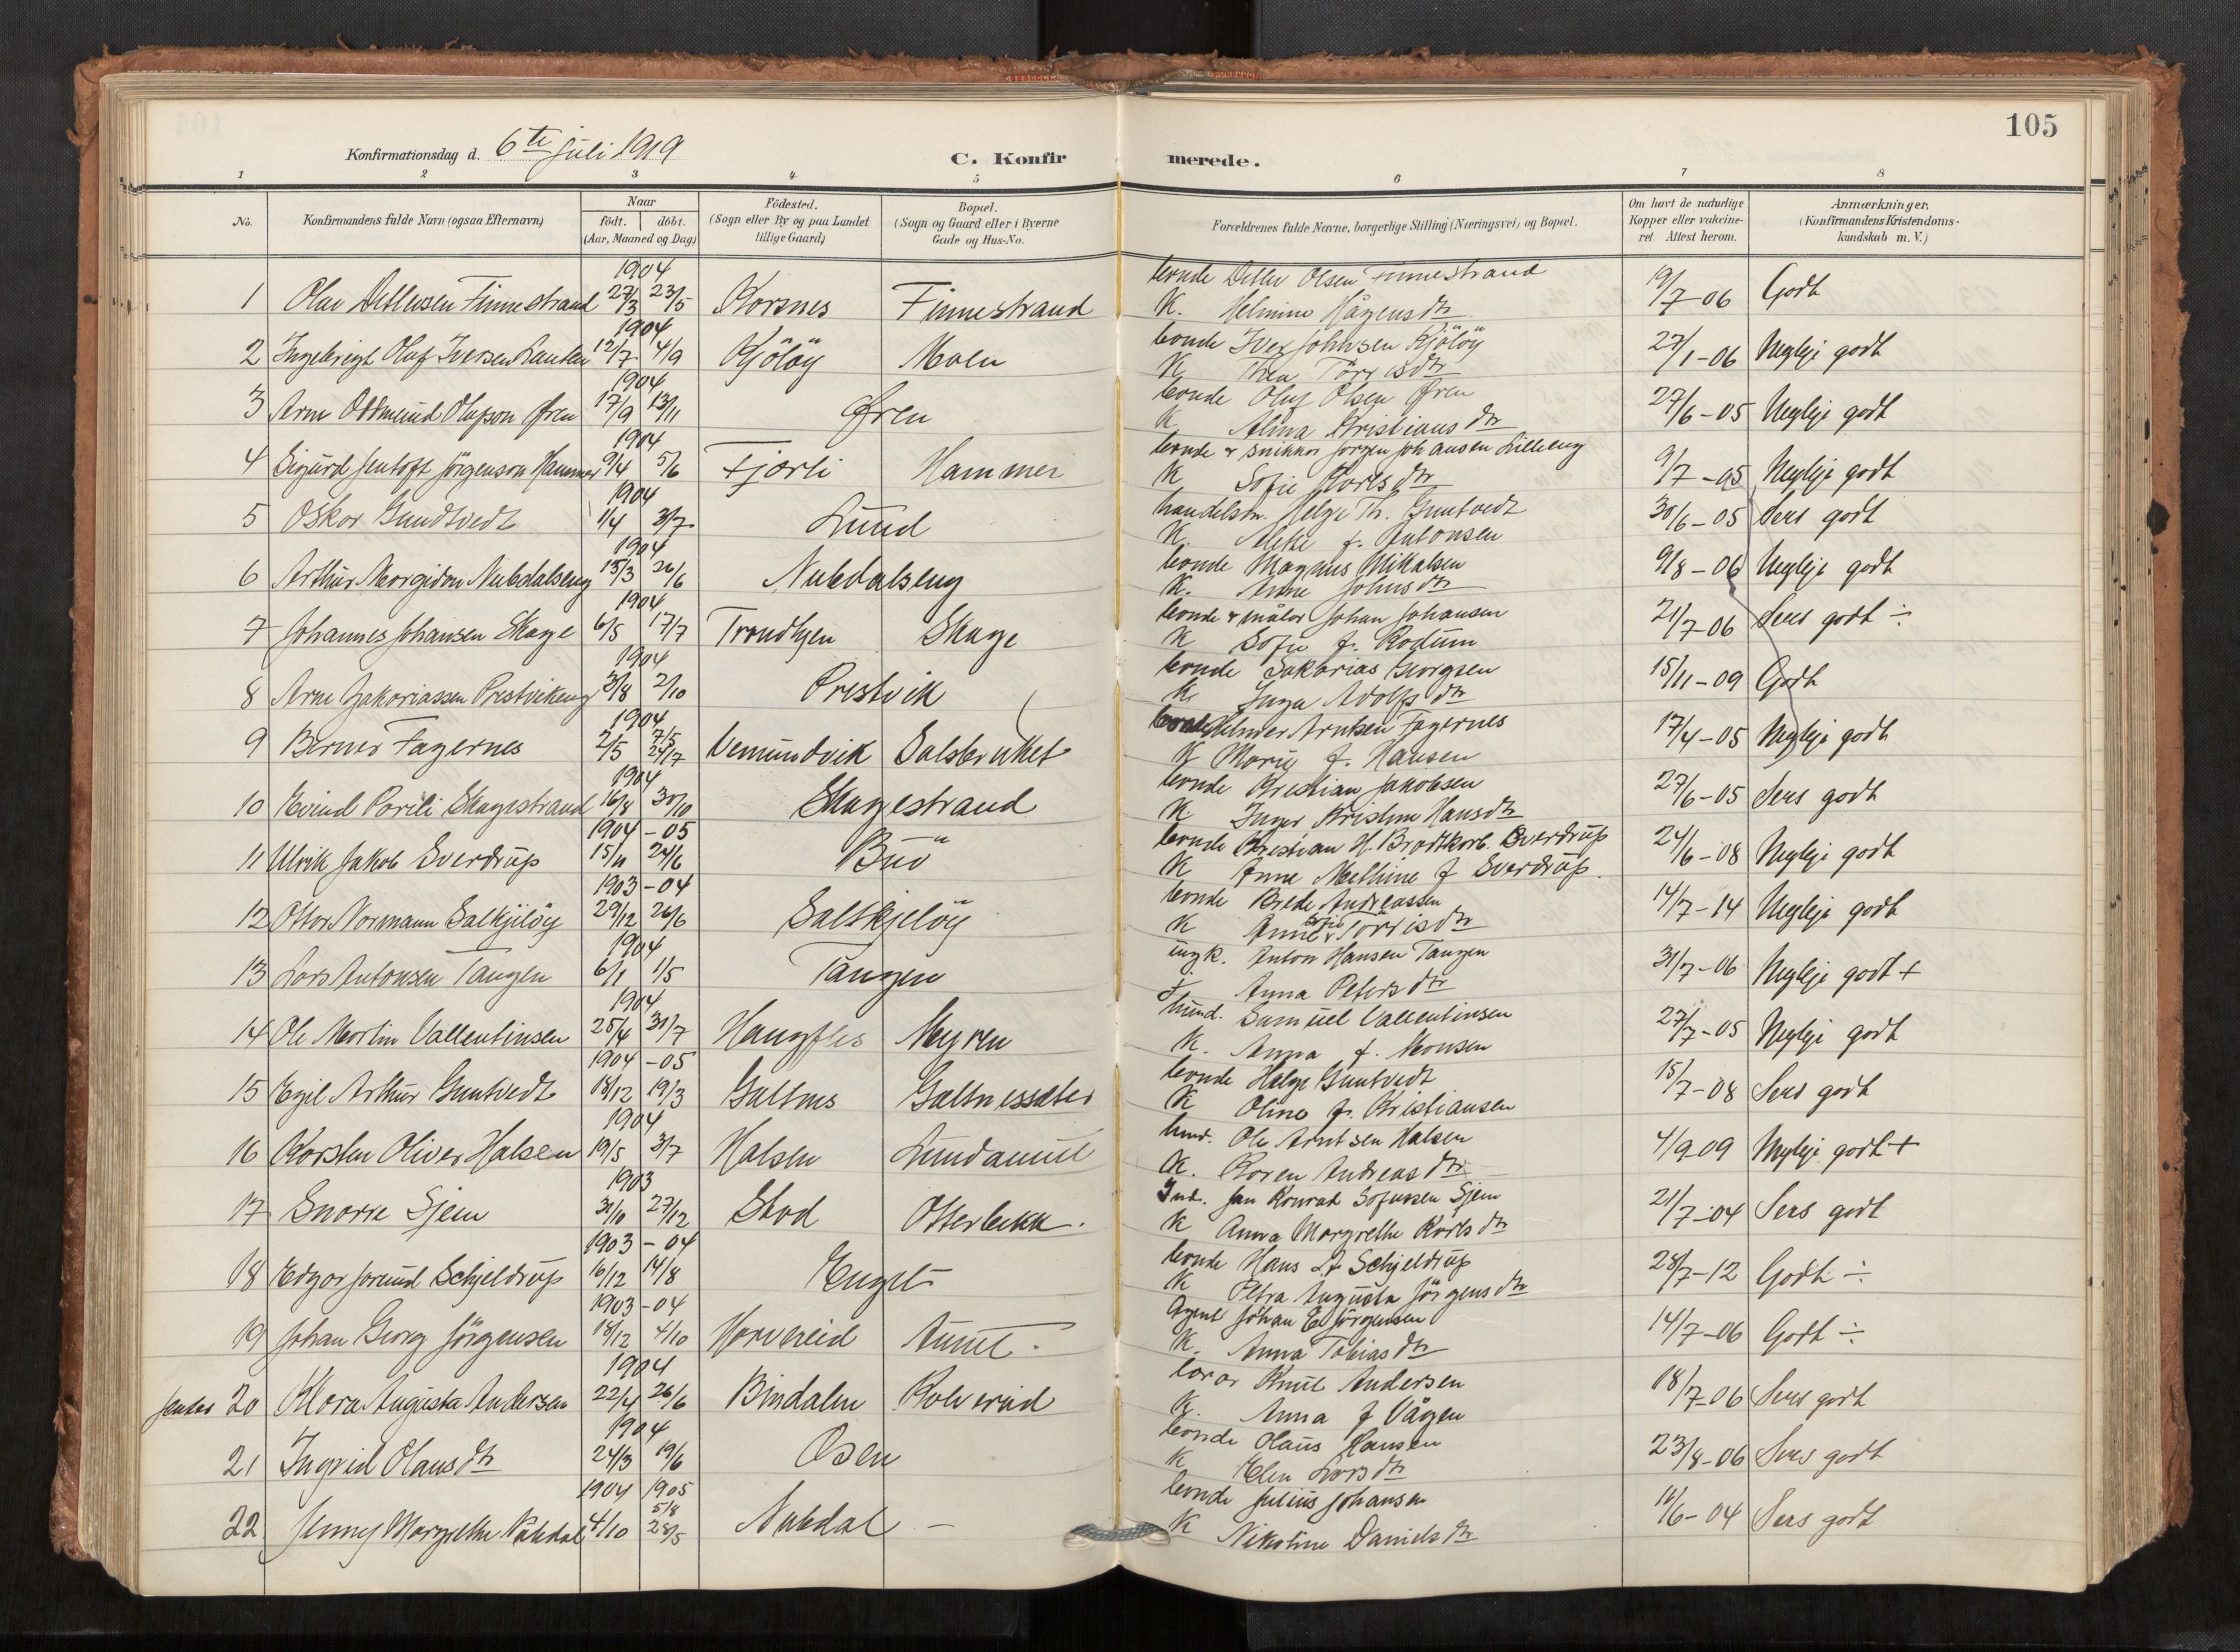 105
Konfirmationsdag d. 6te juli 1919
C. Konfirmerede.
1 2 3 4 5 6 7 8
No. Konfirmandens fulde Navn (ogsaa Efternavn) Naar født. døbt. (Aar, Maaned og Dag) Fødested. (Sogn eller By og paa Landet tillige Gaard) Bopæl. (Sogn og Gaard eller i Byerne Gade og Hus-No. Forældrenes fulde Navne, borgerlige Stilling (Næringsvei) og Bopæl. Om havt de naturlige Kopper eller vakcineret. Attest herom. Anmærkninger. (Konfirmandens Kristendomskundskab m. V.)
1904 bonde Detlev Olsen Finnestrand
1 Olav Detlevsen Finnestrand 27/3 23/5 Korsnes Finnestrand K. Helmine Hågensdtr 19/7-06 Godt
1904 bonde Iver Johnsen Kjöløy
2 Ingebrigt Oluf Iversen 12/7 4/9 Kjöløy Moen K Thea Törrisdtr 27/1-06 Megleje godt
1904 bonde Oluf Olsen Øren
3 Arne Oddmund Olufson Øren 17/9 13/11 Øren K Alma Kristiansdtr 27/6-05 Megleje godt
1904 bonde & snikkar Jørgen Johansen Lilleeng
4 Sigurd Jentoft Jörgenson Hammer 9/4 5/6 Fjærli Hammer K Sofie Karlsdtr 9/7-05 Megleje godt
1904 handelsm. Helge Th. Guntvedt
5 Oskar Gundtvedt 1/4 3/7 Lund K. f. Antonsen 30/6-05 Sers godt
1904 bonde Magnus Mikalsen
6 Arthur Morgidon Nubdalseng 15/3 26/6 Nubdalseng K. Anne Johnsdtr 9/8-06 Megleje godt
1904 bonde & målar Johan Johansen
7 Johannes Johansen Skage 6/5 17/7 Trondhjem Skage K Sofie f. Rodum 21/7-06 Sers godt ÷
1904 bonde Sakarias Georgsen
8 Arne Zakariassen Prestvikeng 3/8 2/10 Prestvik K. Inga Adolfsdtr 15/11-09 Godt
1904 7/5 bonde Helmer Arntsen Fagernes
9 Berner Fagernes 2/5 24/7 Vemundvik Salsbruket K Marie f. Hansen 17/4-05 Megleje godt
1904 bonde Kristian Jakobsen
10 Eivind Parili Skagestrand 16/8 30/10 Skagestrand K Inger Kristine Hansdtr 27/6-05 Sers godt
1904-05 bonde Kristian H. Bradtkorb. Sverdrup
11 Ulrik Jakob Sverdrup 15/11 24/6 Buö K Anne Methine f Sverdrup. 24/6-08 Megleje godt
1903-04 bonde Brede Andreassen
12 Ottar Normann Saltkjeløy 29/12 26/6 Saltkjeløy K Anne Sofie Törrisdtr 14/7-14 Megleje godt
1904 ungk. Anton Hansen Tangen
13 Lars Antonsen Tangen 6/1 1/5 Tangen Anna Petersdtr 31/7-06 Megleje godt +
1904 Samuel Vallentinsen
14 Ole Martin Vallentinsen 25/4 31/7 Haugfles Myren K. Anna f. Monsen 27/7-05 Megleje godt
1904-05 bonde Helge Guntvedt
15 Egil Arthur Guntvedt 18/12 19/3 Galtnes Galtnessæter K Oline f. Kristiansen 15/7-08 Sers godt
1904 Ole Arntsen Halsen
16 Karsten Oliver Halsen 19/5 3/7 Halsen Lundamut K. Karen Andreasdtr 4/9-09 Megleje godt +
1903 Ind. Jan Konrad Sofussen Sjem
17 Snorre Sjem 31/10 27/12 Stod Otterbekk. K Anna Margrethe Karlsdtr 21/7-04 Sers godt
1903-04 bonde Hans Schjeldrup
18 Edgar Jorund Schjeldrup 16/12 14/8 Enget K Petra Augusta Jörgensdtr 28/7-12 Godt ÷
1903-04 Agent Johan E. Jörgensen
19 Johan Georg Jörgensen 18/12 4/10 Horvereid K. Anna Tobiasdtr 14/7-06 Godt ÷
1904 lærar Knut Andersen
Jentes 20 Klara Augusta Andersen 22/4 26/6 Bindalen Kolvereid K. Anna f Vågen 18/7-06 Sers godt
1904 bonde Olaus Hansen
21 Ingrid Olausdtr 24/3 19/6 Osen K Elen Larsdtr 23/8-06 Sers godt
1904 1905 bonde Julius Johansen
22 Jenny Margrethe Nubdal 4/10 5/8 28/5 Nubdal - K Nikoline Danielsdtr 16/6-04 Sers godt